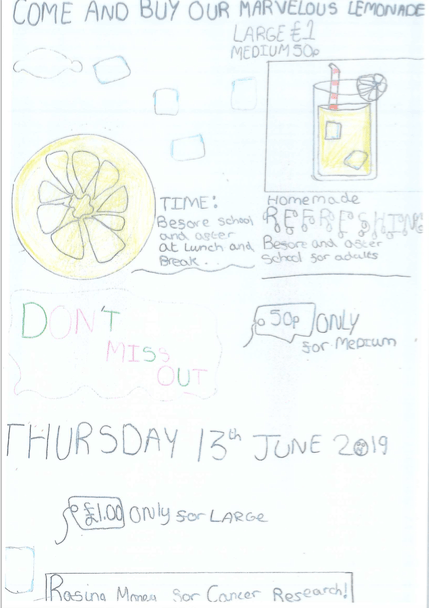 COME AND BUY OUR MARVELOUS LEMONADE
LARGE £1
MEDIUM 50p
TIME:
Besore school
and aster
at Lunch and
Break...
Homemade
REFRESHING
Besore and aster
school sor adules
DON'T
MISS
OUT
50p ONLY
sor MEDIUM
THURSDAY 13th JUNE 2019
£1.00 ONLY sor LARGE
Rasing Money sor Cancer Research!